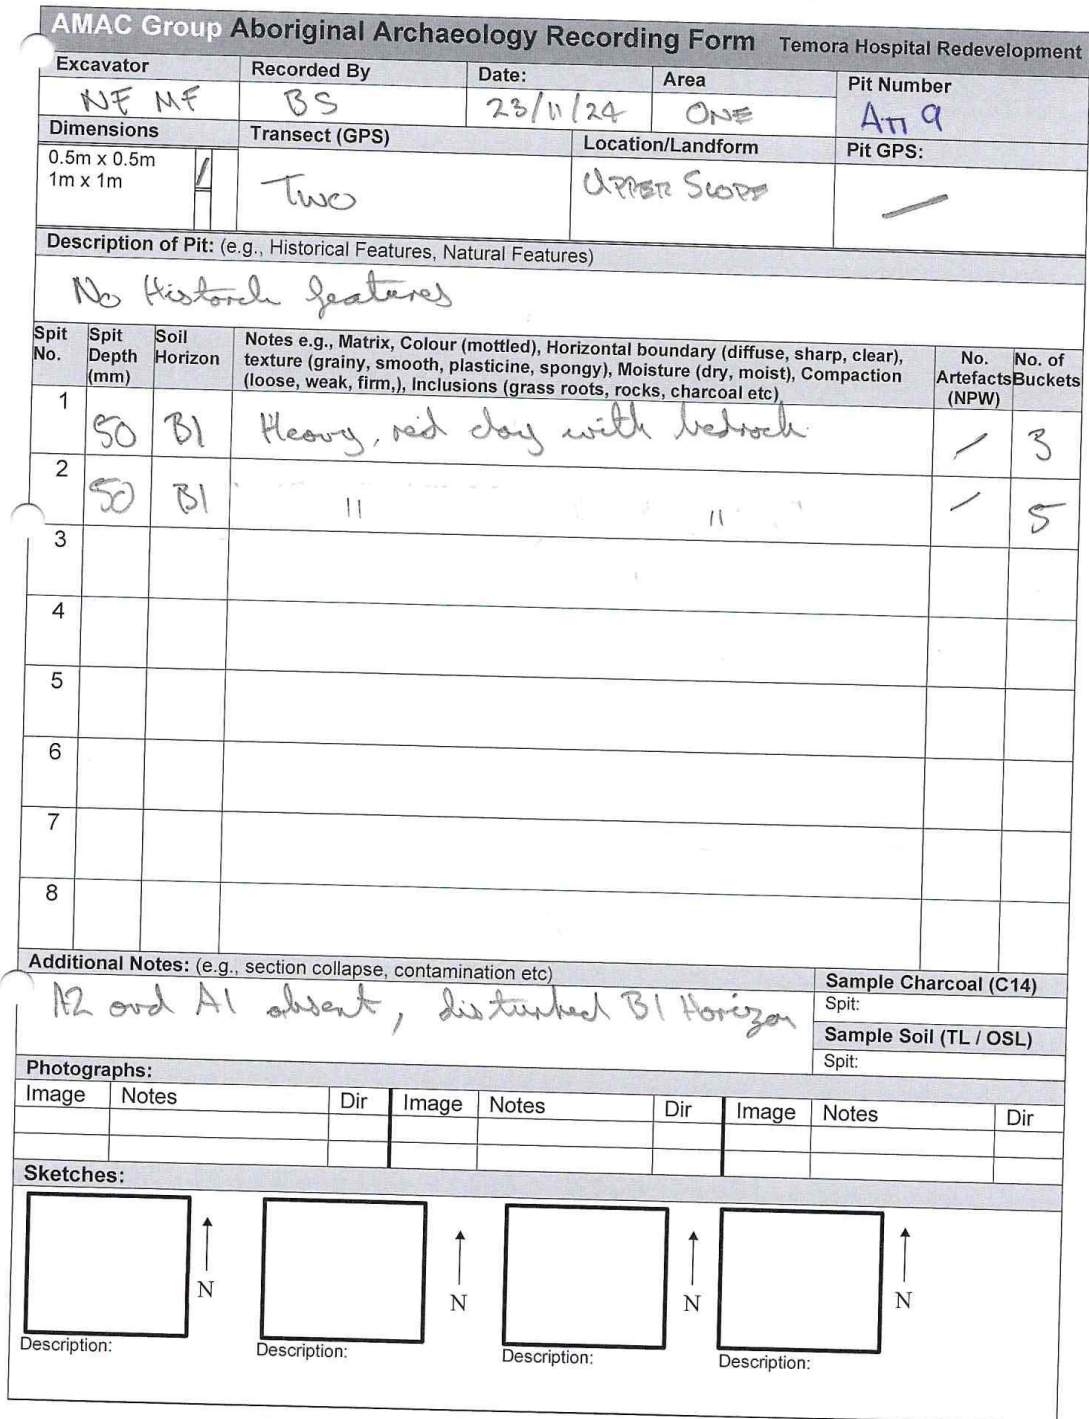 AMAC Group Aboriginal Archaeology Recording Form Temora Hospital Redevelopment
Excavator Recorded By Date: Area Pit Number
NF MF BS 23/11/24 ONE ATT 9
Dimensions Transect (GPS) Location/Landform Pit GPS:
0.5m x 0.5m / TWO UPPER SLOPE —
1m x 1m
Description of Pit: (e.g., Historical Features, Natural Features)
No Historch features
Spit No. Spit Depth (mm) Soil Horizon Notes e.g., Matrix, Colour (mottled), Horizontal boundary (diffuse, sharp, clear), texture (grainy, smooth, plasticine, spongy), Moisture (dry, moist), Compaction (loose, weak, firm,), Inclusions (grass roots, rocks, charcoal etc) No. Artefacts (NPW) No. of Buckets
1 50 B1 Heavy, red clay with bedrock. / 3
2 50 B1 " " / 5
3
4
5
6
7
8
Additional Notes: (e.g., section collapse, contamination etc) Sample Charcoal (C14)
A2 and A1 absent, disturbed B1 Horizon Spit:
Sample Soil (TL / OSL)
Spit:
Photographs:
Image Notes Dir Image Notes Dir Image Notes Dir
Sketches:
N N N N
Description: Description: Description: Description: